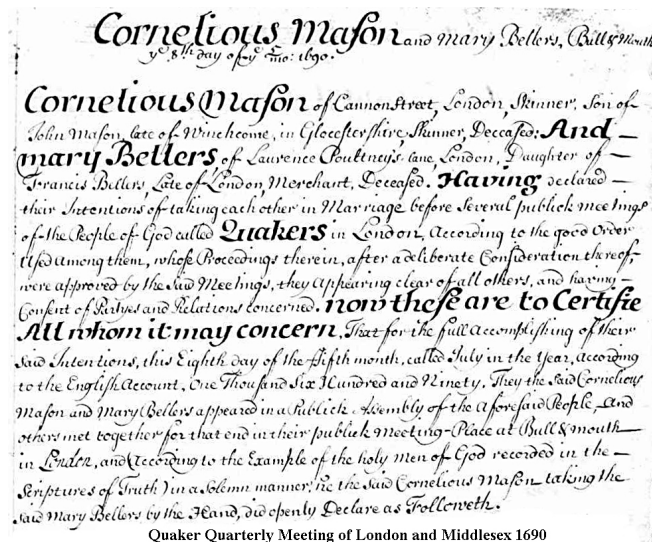 Cornelious Mason and Mary Bellers, Bull & Mouth
yᵉ 8ᵗʰ day of yᵉ 5ᵗ mo: 1690.
Cornelious Mason of Cannonstreet, London, Skinner, Son of
John Mason, late of Winchcome, in Glocestershire, Skinner, Deceased: And
mary Bellers, of Laurence Poultney's lane, London, Daughter of
Francis Bellers, Late of London, Merchant, Deceased. Having declared
their Intentions of taking each other in Marriage before Several publick meetings
of the People of God called Quakers in London, According to the good Order
Used among them, whose Proceedings therein, after a deliberate Consideration thereof,
were approved by the Said Meetings, they Appearing clear of all others, and having
Consent of Partyes and Relations concerned. now these are to Certifie
All whom it may concern, That for the full Accomplishing of their
Said Intentions, this Eighth day of the Fifth month, called July in the Year, According
to the English Account, One Thousand Six Hundred and Ninety. They the Said Cornelious
Mason and Mary Bellers appeared in a Publick Assembly of the Aforesaid People, And
others met together for that end in their publick Meeting-Place at Bull & mouth
in London, and (According to the Example of the holy men of God recorded in the
Scriptures of Truth) in a Solemn manner; he the Said Cornelious Mason taking the
said Mary Bellers by the Hand, did openly Declare as Followeth.
Quaker Quarterly Meeting of London and Middlesex 1690